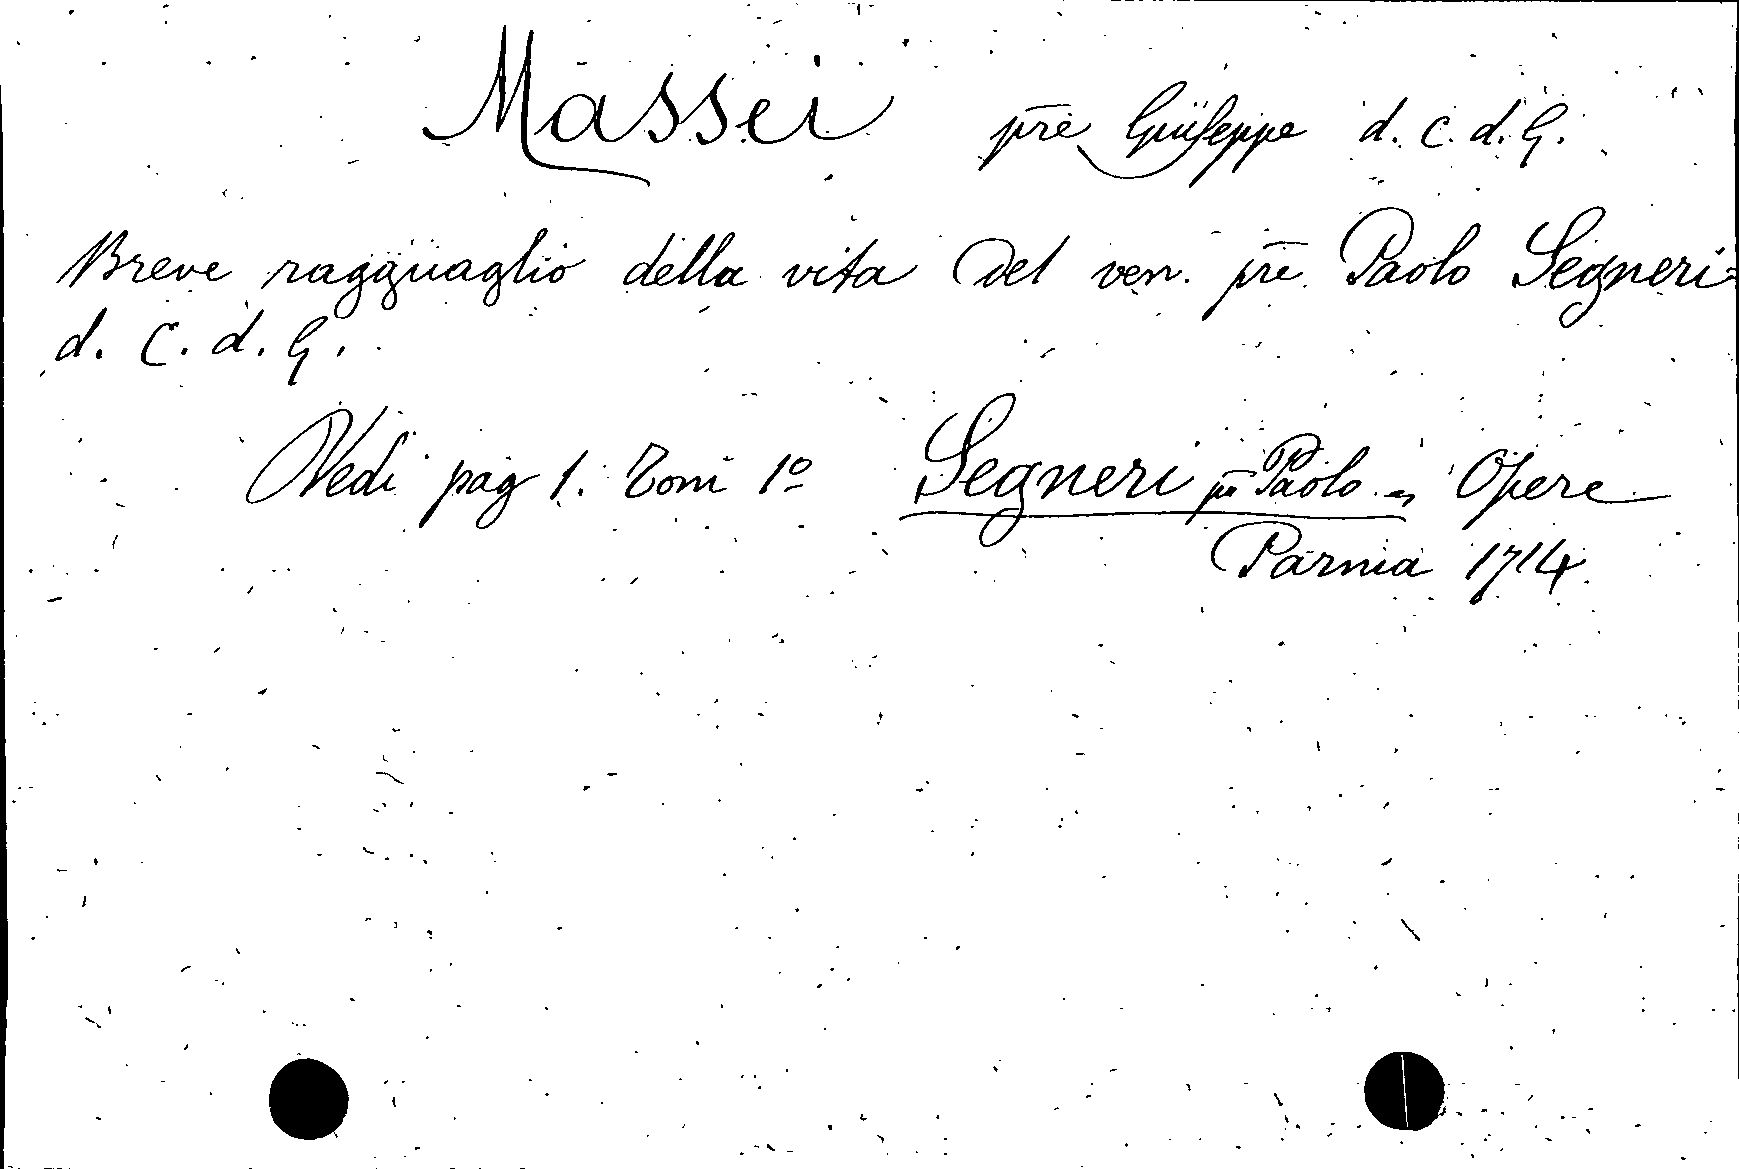 Massei pre Giuseppe d. C. d. G.
Breve ragguaglio della vita del ven. pre Paolo Segneri
d. C. d. G.
Vedi pag 1. Tom 1º Segneri pre Paolo = Opere
Parma 1714.